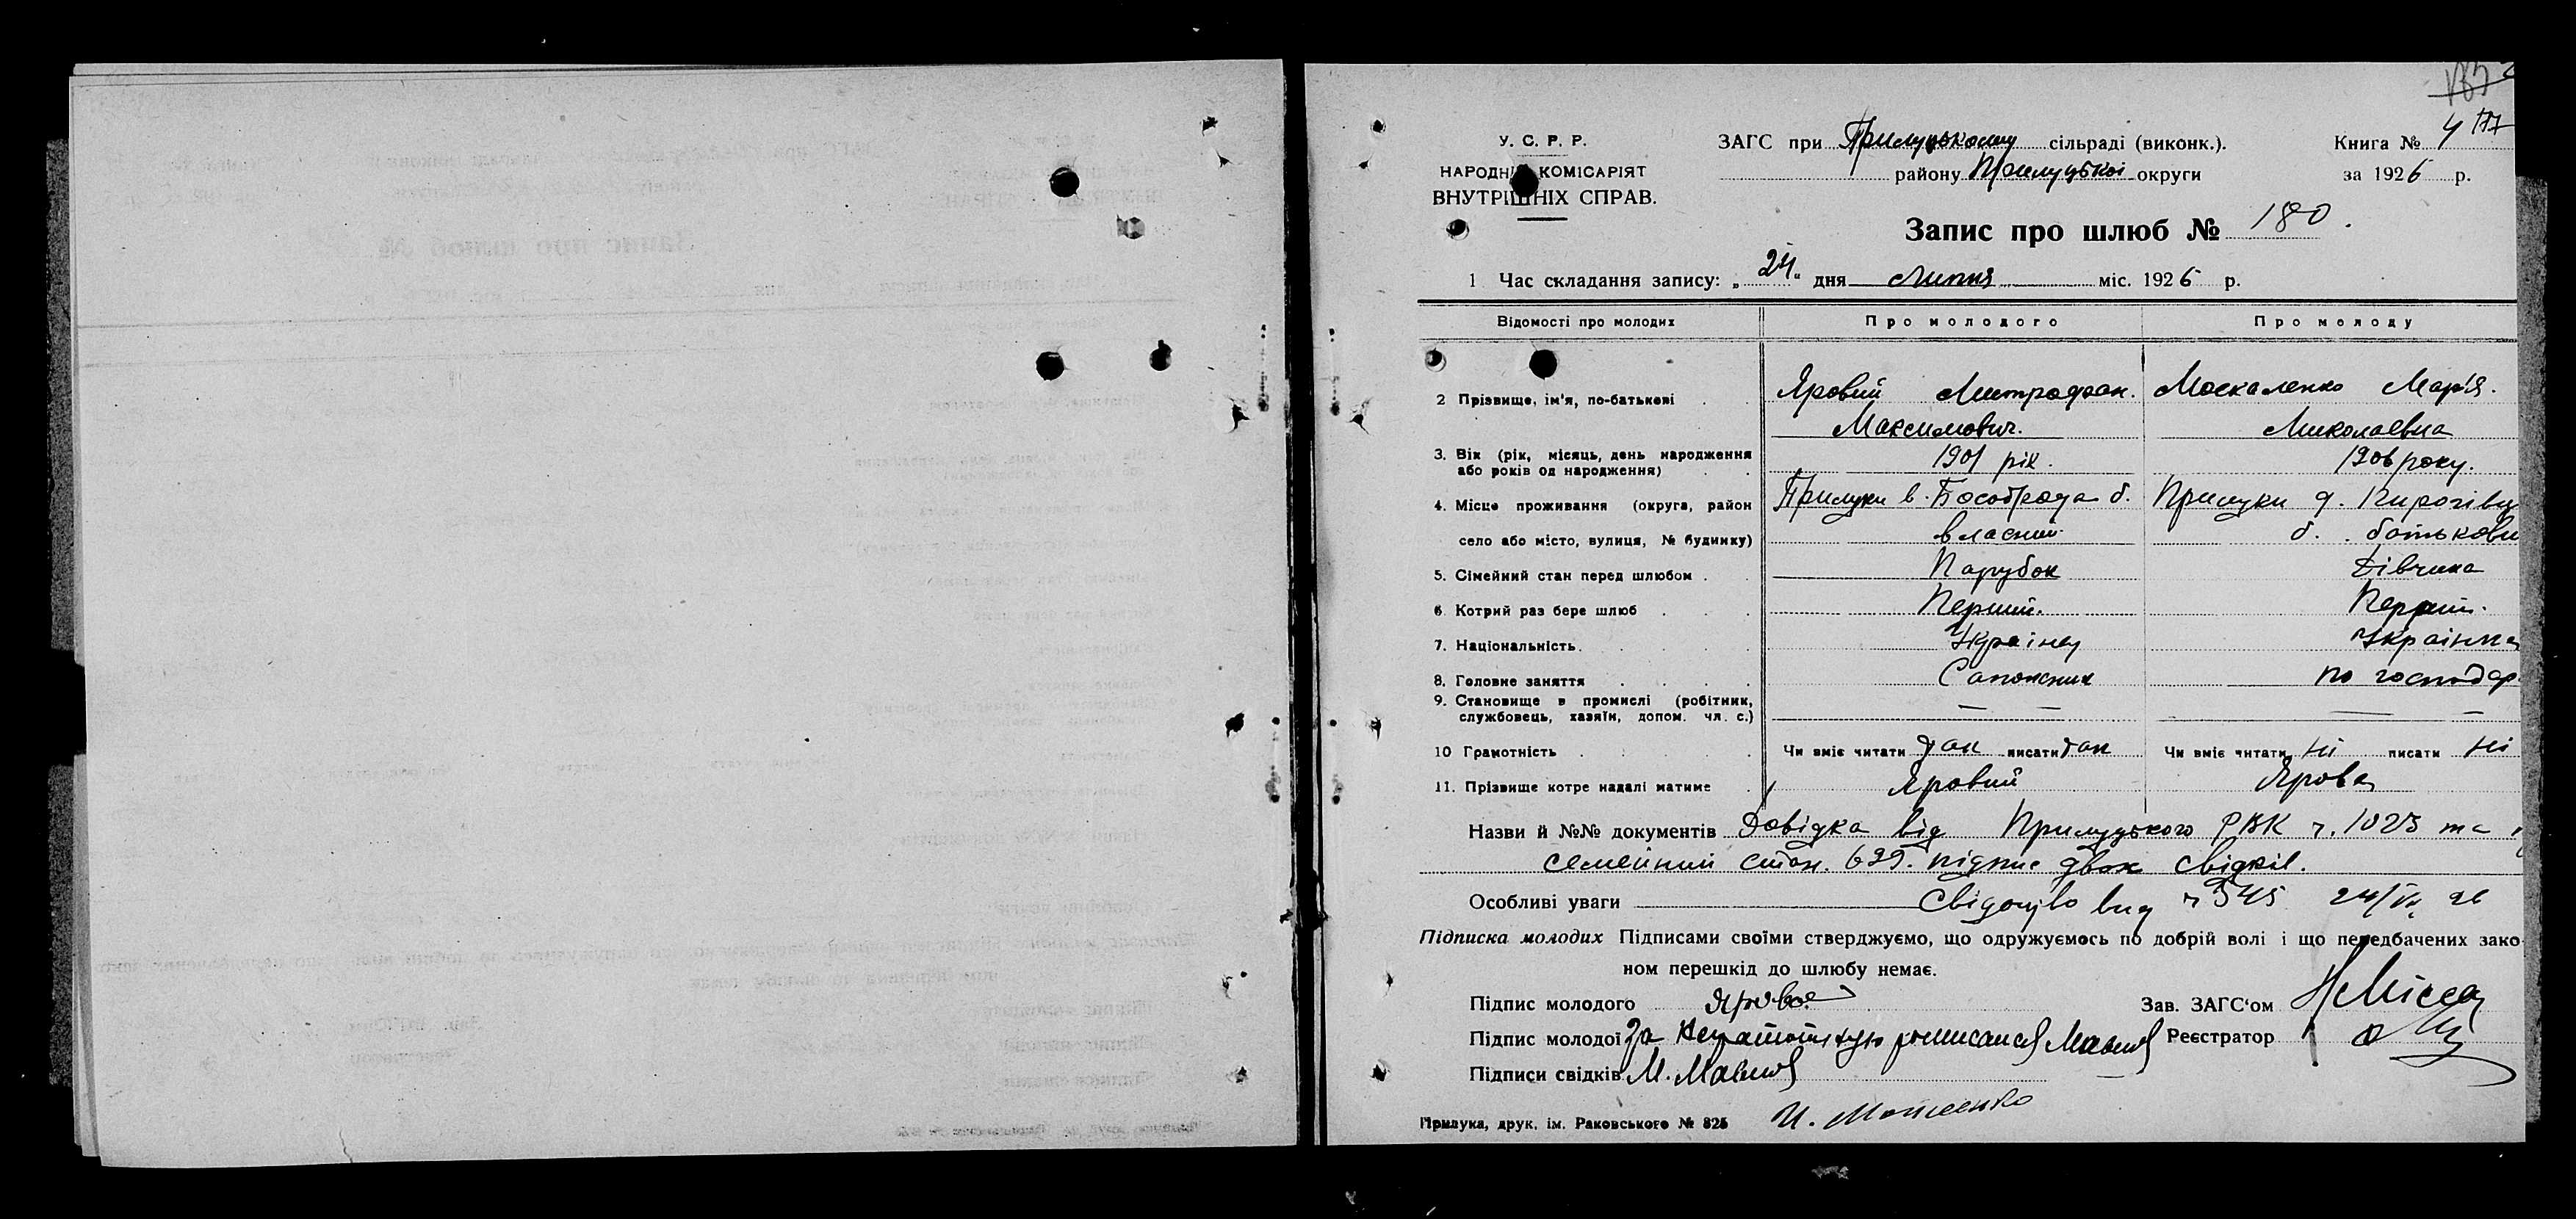 У. С. Р. Р.
НАРОДНІЙ КОМІСАРІЯТ
ВНУТРІШНІХ СПРАВ.
ЗАГС при Прилуцькому сільраді (виконк.).
району Прилуцької округи
Книга № 4 177
за 1926 р.
Запис про шлюб № 180.
1 Час складання запису: „24“ дня Липня міс. 1926 р.
Відомості про молодих Про молодого Про молоду
2 Прізвище, ім'я, по-батькові Яровий Митрофан. Москаленко Мар'я.
Максимович. Миколаевна
3. Вік (рік, місяць, день народження
або років од народження) 1901 рік. 1906 року.
4. Місце проживання (округа, район Прилуки в. б. Прилуки
село або місто, вулиця, № будинку) власний б. батькови
5. Сімейний стан перед шлюбом Парубок Дівчина
6. Котрий раз бере шлюб Перший. Перший.
7. Національність Українец Українка
8. Головне заняття Сапожник по господар
9. Становище в промислі (робітник,
службовець, хазяїн, допом. чл. с.) — — — —
10 Грамотність Чи вміє читати так писати так Чи вміє читати ні писати ні
11. Прізвище котре надалі матиме Яровий Ярова
Назви й №№ документів Довідка від Прилуцького РВК ч. 1023 та
семейний стан. 629. підпис двох свідків.
Особливі уваги Свідоцтво вид ч 345 24/VII 26
Підписка молодих Підписами своїми стверджуємо, що одружуємось по добрій волі і що передбачених зако-
ном перешкід до шлюбу немає.
Підпис молодого Яровой Зав. ЗАГС'ом
Підпис молодої За неграмотную росписался Реєстратор
Підписи свідків М.
Прилука, друк. ім. Раковського № 825